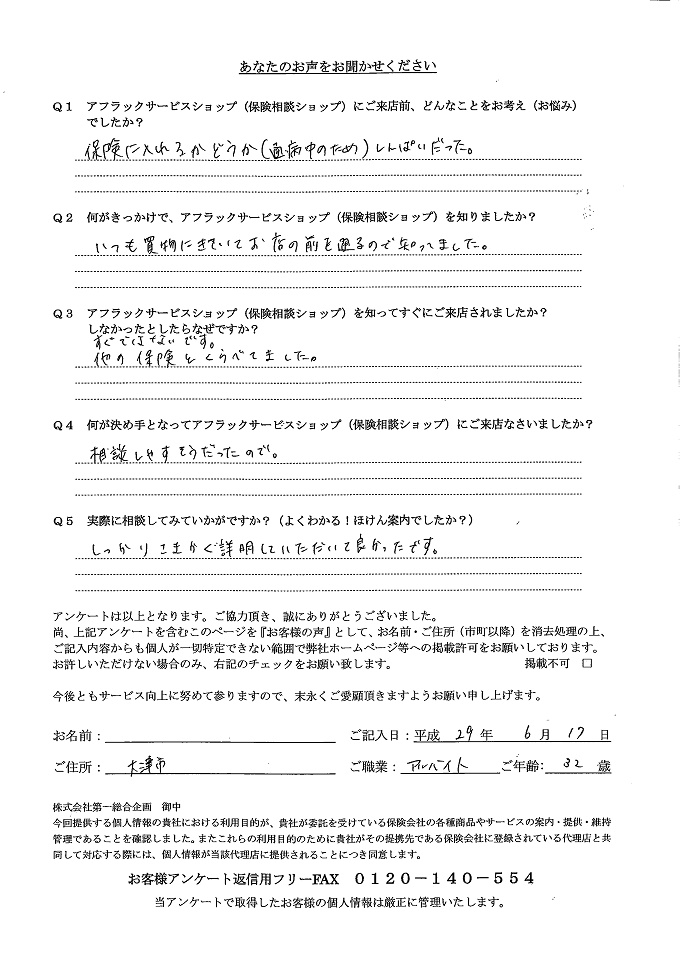 あなたのお声をお聞かせください
Q1 アフラックサービスショップ（保険相談ショップ）にご来店前、どんなことをお考え（お悩み）
でしたか？
保険に入れるかどうか(通病中のため)しんぱいだった。
Q2 何がきっかけで、アフラックサービスショップ（保険相談ショップ）を知りましたか？
いつも買物にきていてお店の前を通るので知ってました。
Q3 アフラックサービスショップ（保険相談ショップ）を知ってすぐにご来店されましたか？
しなかったとしたらなぜですか？
すぐではないです。
他の保険をくらべてました。
Q4 何が決め手となってアフラックサービスショップ（保険相談ショップ）にご来店なさいましたか？
相談しやすそうだったので。
Q5 実際に相談してみていかがですか？（よくわかる！ほけん案内でしたか？）
しっかりこまかく詳明していただいて良かったです。
アンケートは以上となります。ご協力頂き、誠にありがとうございました。
尚、上記アンケートを含むこのページを『お客様の声』として、お名前・ご住所（市町以降）を消去処理の上、
ご記入内容からも個人が一切特定できない範囲で弊社ホームページ等への掲載許可をお願いしております。
お許しいただけない場合のみ、右記のチェックをお願い致します。 掲載不可 □
今後ともサービス向上に努めて参りますので、末永くご愛顧頂きますようお願い申し上げます。
お名前： ご記入日：平成 29 年 6 月 17 日
ご住所： 大津市 ご職業： アルバイト ご年齢： 32 歳
株式会社第一総合企画 御中
今回提供する個人情報の貴社における利用目的が、貴社が委託を受けている保険会社の各種商品やサービスの案内・提供・維持
管理であることを確認しました。またこれらの利用目的のために貴社がその提携先である保険会社に登録されている代理店と共
同して対応する際には、個人情報が当該代理店に提供されることにつき同意します。
お客様アンケート返信用フリーFAX 0120－140－554
当アンケートで取得したお客様の個人情報は厳正に管理いたします。